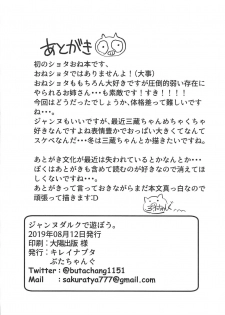 あとがき
初のショタおね本です。
おねショタではありませんよ！(大事)
おねショタももちろん大好きですが圧倒的弱い存在に
やられるお姉さん・・・も素敵です！すき！！！！
今回はどうだったでしょうか、体格差って難しいです
ね・・・。
ジャンヌもいいですが、最近三蔵ちゃんめちゃくちゃ
好きなんですよね表情豊かでおっぱい大きくてなんて
スケベなんだ・・・冬は三蔵ちゃんとか描きたいですね。
あとがき文化が最近は失われているとかなんとか・・・
ぼくはあとがきも含めて読むのが好きなので消えてほ
しくないですね・・・。
あとがきって言っておきながらまだ本文真っ白なので
頑張って描きます:D
ジャンヌダルクで遊ぼう。
2019年08月12日発行
印刷：大陽出版 様
発行：キレイナブタ
ぶたちゃんぐ
Twitter：@butachang1151
Mail：sakuratya777@gmail.com